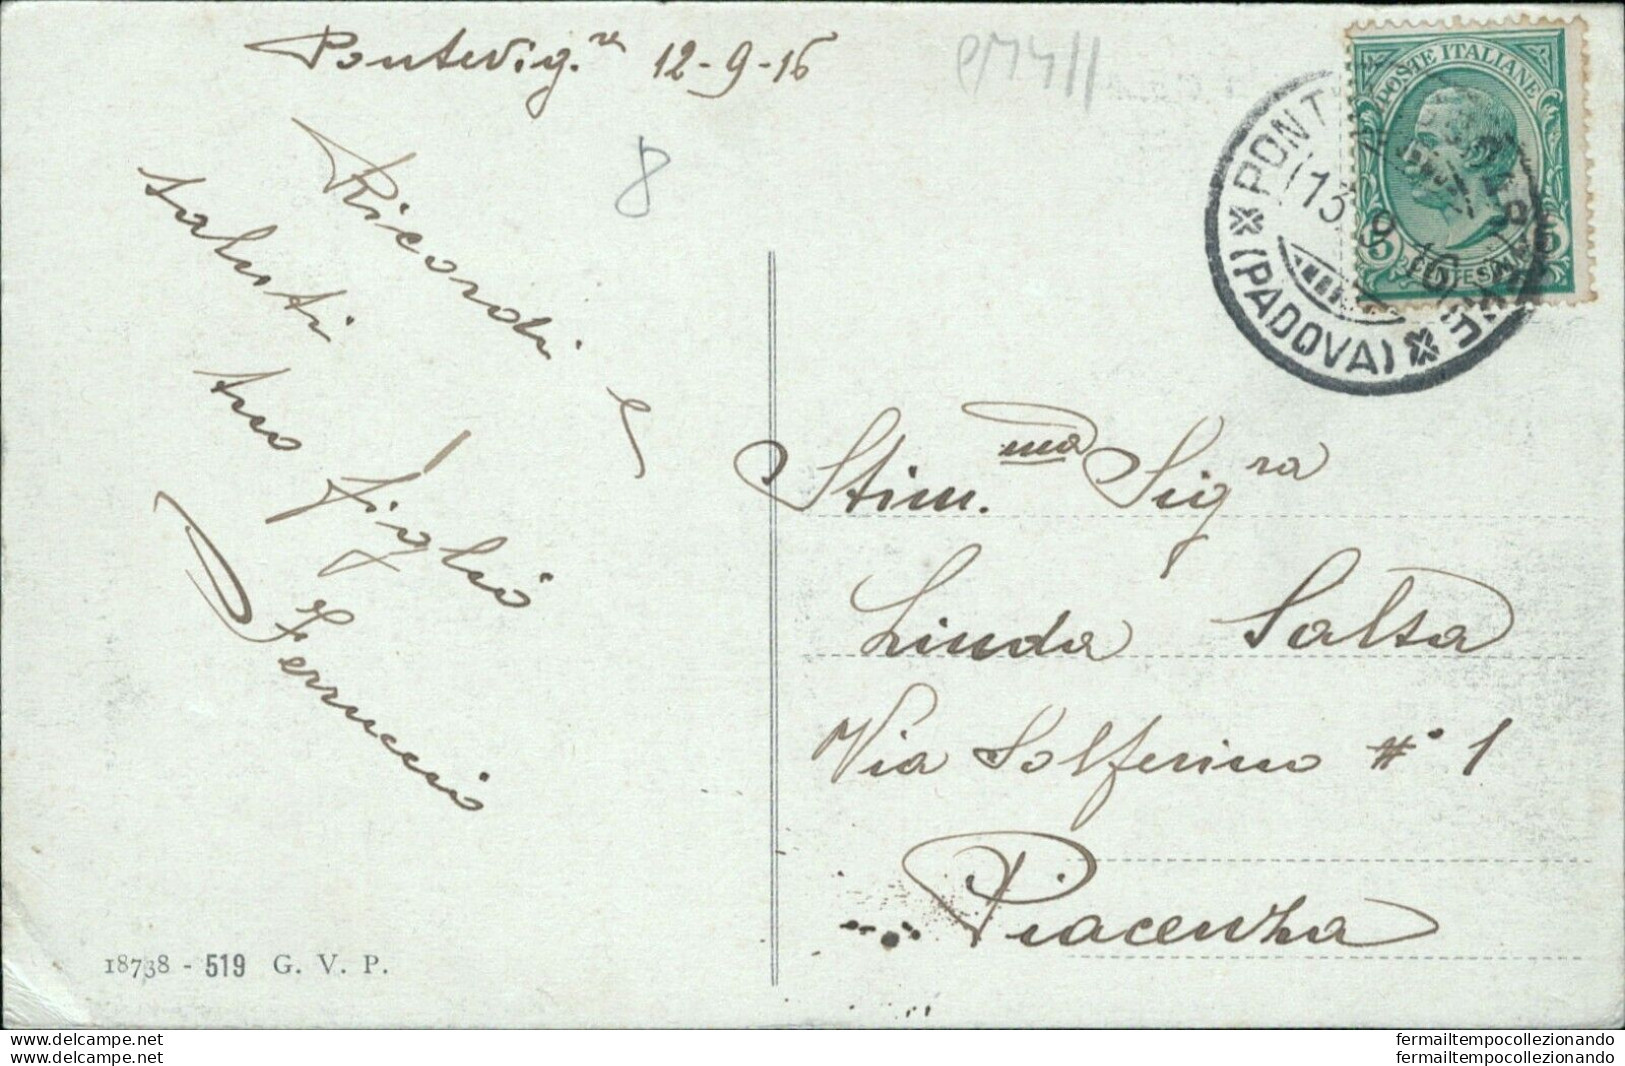 Pontevig.re 12-9-16
8
Ricordi e
saluti
tuo figlio
Ferruccio
POSTE ITALIANE
(PADOVA)
13 9 16
Stim.ma Sig.ra
Linda Salsa
Via Solferino N° 1
Piacenza
18738 - 519 G. V. P.
fermailtempocollezionando
fermailtempocollezionando
delcampe.net
delcampe.net